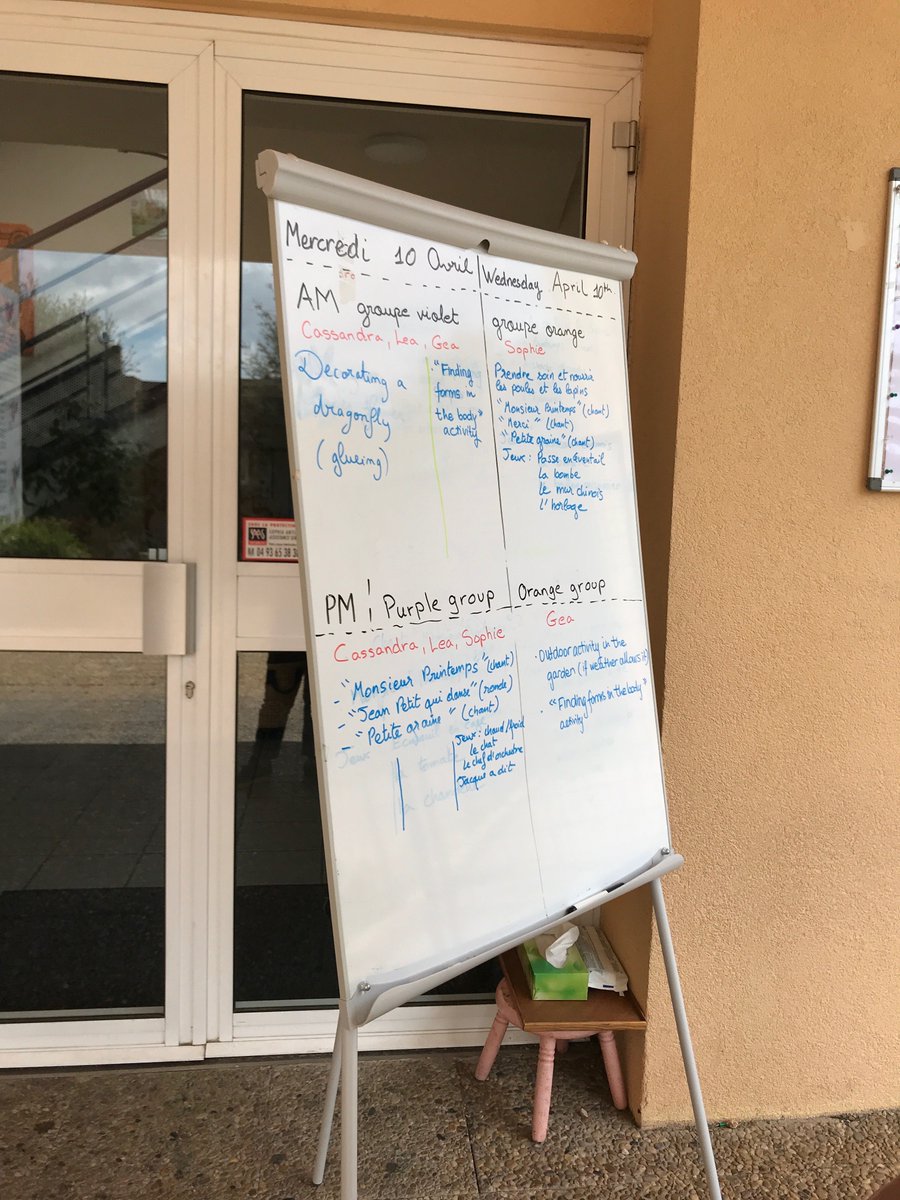 Mercredi 10 Avril
Wednesday April 10th
AM groupe violet
Cassandra, Lea, Gea
Decorating a
dragonfly
(glueing)
• "Finding
forms in
the body"
activity
groupe orange
Sophie
Prendre soin et nourrir
les poules et les lapins
"Monsieur Printemps" (chant)
"Merci" (chant)
"Petite graine" (chant)
Jeux : Passe en éventail
la bombe
le mur chinois
l'horloge
PM Purple group
Cassandra, Lea, Sophie
- "Monsieur Printemps" (chant)
- "Jean Petit qui danse" (ronde)
- "Petite graine" (chant)
Jeux : chaud/froid
le chat
le chef d'orchestre
Jacque a dit
Orange group
Gea
• Outdoor activity in the
garden (if weather allows it)
• "Finding forms in the body"
activity
04 93 65 38 38